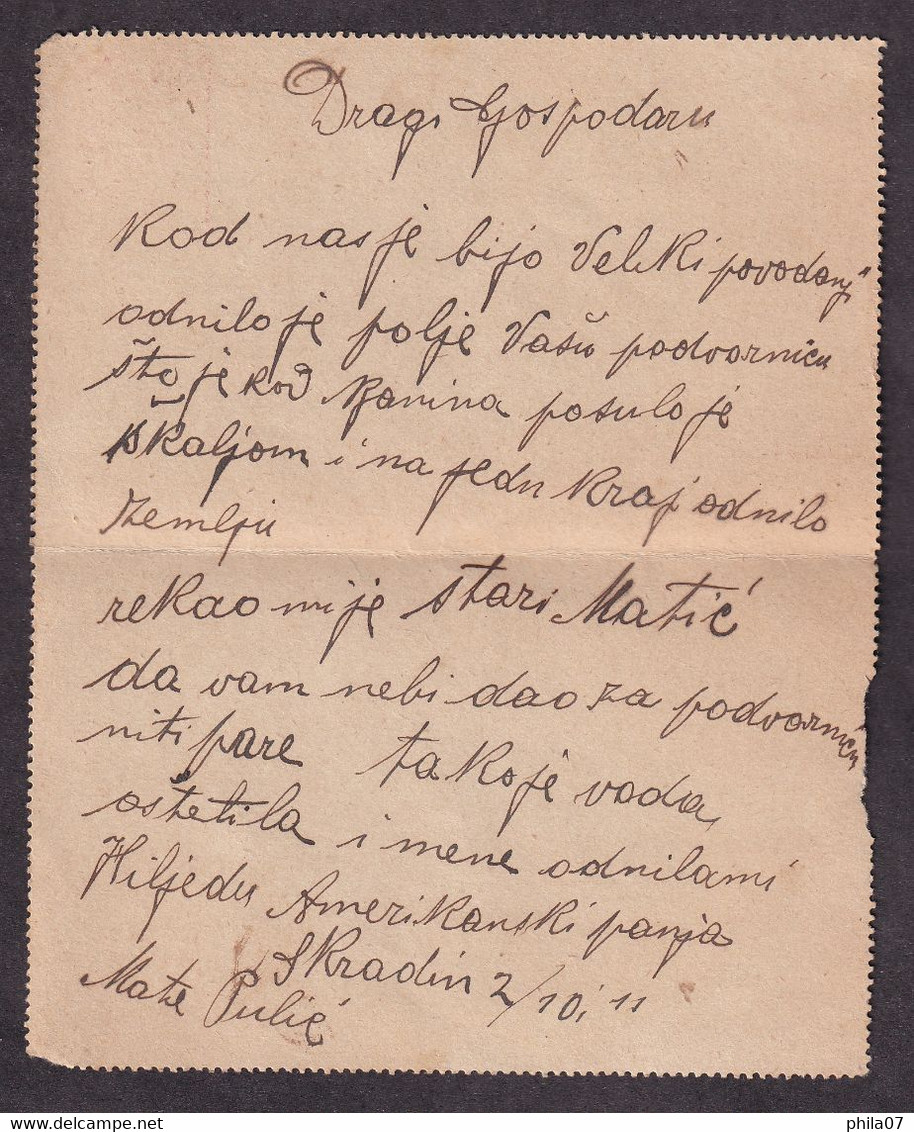 Dragi Gospodaru
Kod nas je bijo Veliki povodanj
odnilo je polje Vašu podvornicu
što je kod Kanina posulo je
škaljom i na jednu kraj odnilo
zemlju
rekao mi je stari Matić
da vam nebi dao za podvornicu
niti pare tako je voda
oštetila i mene odnilami
Hiljedu Amerikanski panja
Skradin 2/10, 11
Mate Pulić
phila07